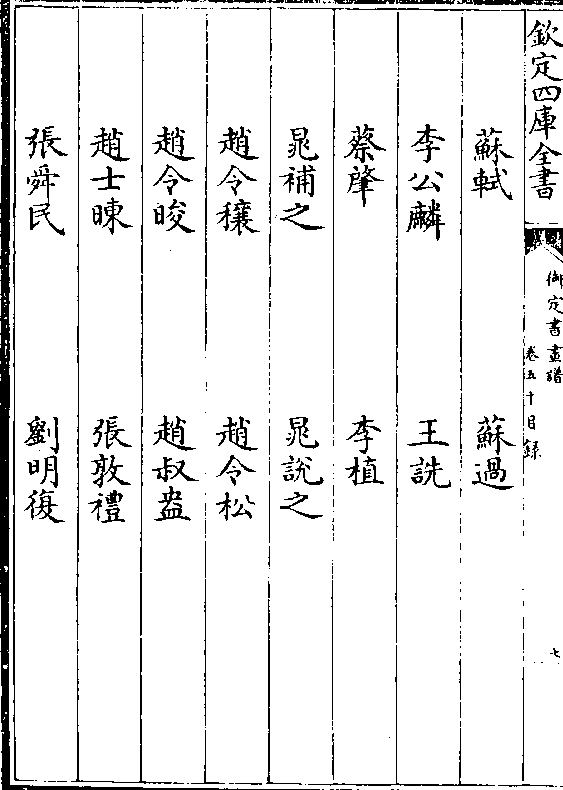 欽定四庫全書
御定書畫譜
卷五十目錄
七
蘇軾 蘇過
李公麟 王詵
蔡肇 李植
晁補之 晁說之
趙令穰 趙令松
趙令晙 趙叔盎
趙士暕 張敦禮
張舜民 劉明復